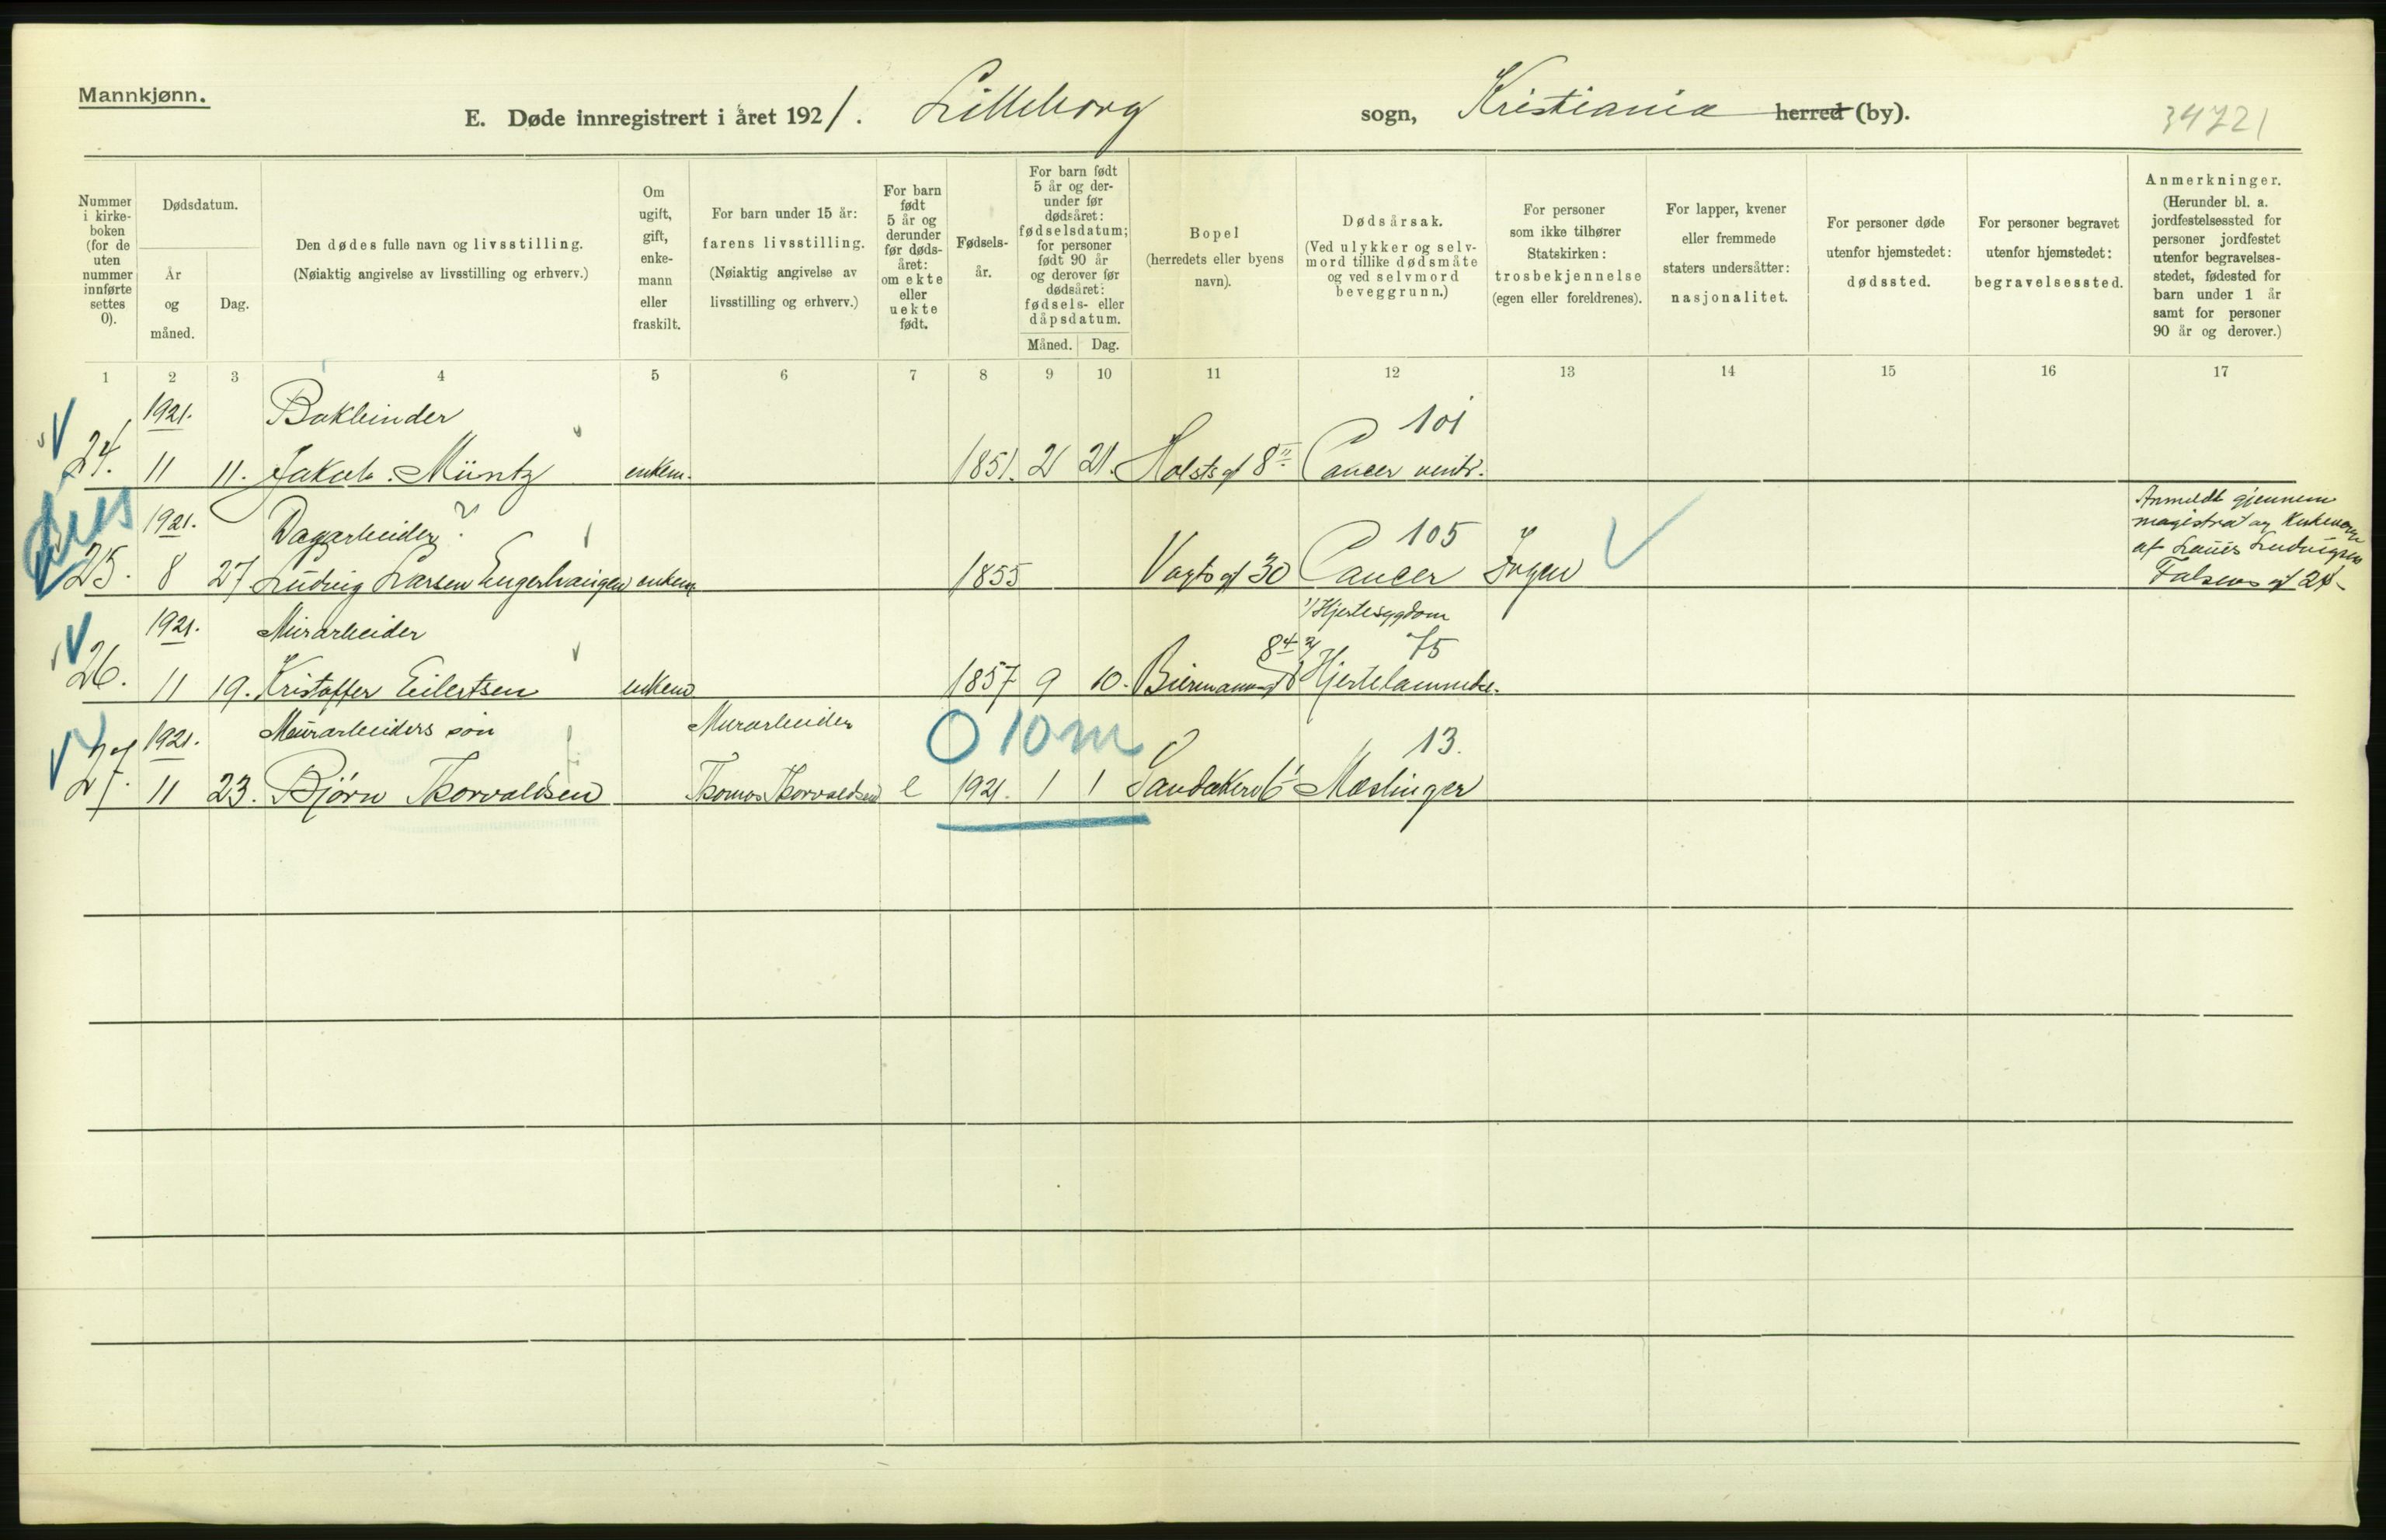 Mannkjønn.
E. Døde innregistrert i året 1921. Lilleborg sogn, Kristiania herred (by).
34721
Nummer i kirkeboken (for de uten nummer innførte settes 0).
Dødsdatum.
År og måned.
Dag.
Den dødes fulle navn og livsstilling.
(Nøiaktig angivelse av livsstilling og erhverv.)
Om ugift, gift, enkemann eller fraskilt.
For barn under 15 år:
farens livsstilling.
(Nøiaktig angivelse av livsstilling og erhverv.)
For barn født 5 år og derunder før dødsåret: om ekte eller uekte født.
Fødselsår.
For barn født 5 år og derunder før dødsåret: fødselsdatum; for personer født 90 år og derover før dødsåret: fødsels- eller dåpsdatum.
Måned. Dag.
Bopel
(herredets eller byens navn).
Dødsårsak.
(Ved ulykker og selvmord tillike dødsmåte og ved selvmord beveggrunn.)
For personer som ikke tilhører Statskirken:
trosbekjennelse
(egen eller foreldrenes).
For lapper, kvener eller fremmede staters undersåtter:
nasjonalitet.
For personer døde utenfor hjemstedet:
dødssted.
For personer begravet utenfor hjemstedet:
begravelsessted.
Anmerkninger.
(Herunder bl. a. jordfestelsessted for personer jordfestet utenfor begravelsesstedet, fødested for barn under 1 år samt for personer 90 år og derover.)
1 2 3 4 5 6 7 8 9 10 11 12 13 14 15 16 17
1921. Bokbinder 101
24. 11 11. Jakob Müntz enkem. 1851. 2 21. Holsts gt 8 II Cancer ventr.
1921. Dagarbeider? 105
25. 8 27 Ludvig Larsen enkem 1855 Vogts gt 30 Cancer Ingen
Anmeldt gjennem
magistrat og
af Ludvigsen
Falsens gt
1921. Murarbeider 1) Hjertesygdom
8 4 2) 75
26. 11 19. Kristoffer Eilertsen enkem 1857 9 10. Biermannsgt Hjertelammelse.
1921. Murarbeiders søn Murarbeider 0 10 m 13.
27. 11 23. Bjørn Thorvaldsen Thomas Thorvaldsen e 1921. 1 1 Sandakerv 6 Mæslinger